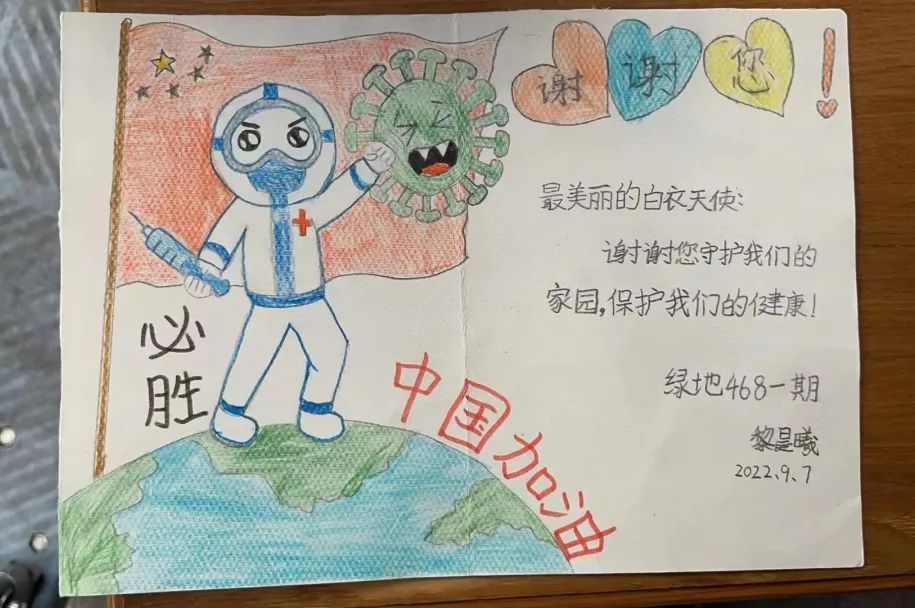 谢谢您!
最美丽的白衣天使:
谢谢您守护我们的
家园,保护我们的健康!
绿地468一期
黎昰曦
2022.9.7
必
胜
中国加油